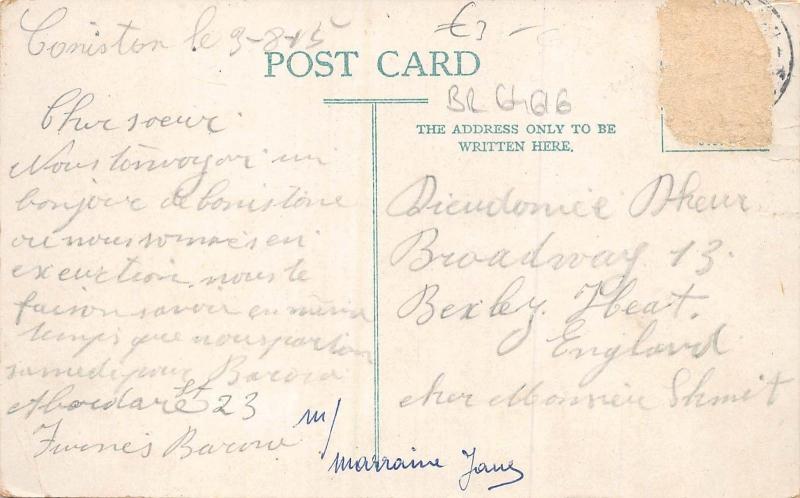 Coniston le 9-8-15
£3 -
POST CARD
BR 6466
THE ADDRESS ONLY TO BE
WRITTEN HERE.
Cher soeur
Nous t'envoyon un
bonjour de Conistone
ou nous sommes en
excurtion, nous te
faison savoir en même
temps que nous parton
samedi pour Barow
Abordare St 23
Furnes Barow
Dieudonnée Dheur
Broadway 13.
Bexley Heat.
England
cher Monsieur Shmit
m/
Marraine Jane